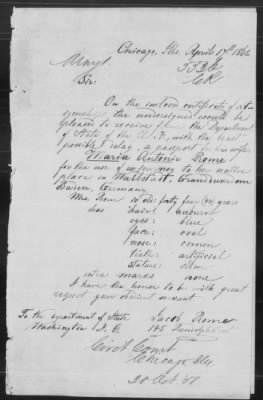 Chicago, Ills. April 17th 1862
5320
CR
Sir:
On the inclosed certificate of cit-
izenship the undersigned would be
pleased to receive from the Department
of State of the U. S., with the least
possible delay, a passport for his wife
Maria Antonie Rome
for the use of a journey to her native
place in Grandduchy
Baden, Germany
Mrs. Rome is old forty four (44) years
has hair: auburn
eyes: blue
face: oval
nose: comon
teeth: artificial
stature: slim
extra marks none
I have the honor to be with great
respect your obedient servant
To the Department of State Jacob Rome
Washington D. C. 145 Randolph St
Circt Court
Chicago Ills
20 Oct '58